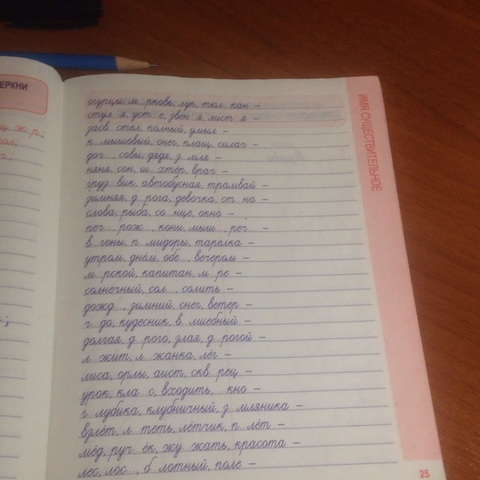 ЕРКНИ
ИМЯ СУЩЕСТВИТЕЛЬНОЕ
огурцы, м рковь, лук, тюл пан –
стул я, уст с, звен я, лист я –
засв стел, полный, умыл –
п мышовый, снег, плащ, силач –
доч , совы, дядя, з мля –
няня, сон, ш хтёр, враг –
груз вик, автобусная, трамвай –
зимняя, д рога, девочка, ст на –
слова, рыба, со нце, окно –
печ , рож , кони, мыш , реч –
в гоны, п мидоры, тарелка –
утром, днём, обе , вечером –
м рской, капитан, м ре –
солнечный, сол , солить –
дожд , зимний, снег, ветер –
ч до, кудесник, в лшебный –
долгая, д рого, злая, д рогой –
л жит, л жанка, лёг –
лиса, орлы, аист, скв рец –
урок, кла с, входить, кно –
г лубика, клубничный, з мляника –
взлёт, л теть, лётчик, п лёт –
мёд, руч ёк, жу жать, красота –
лес, лос , б лотный, поле –
25